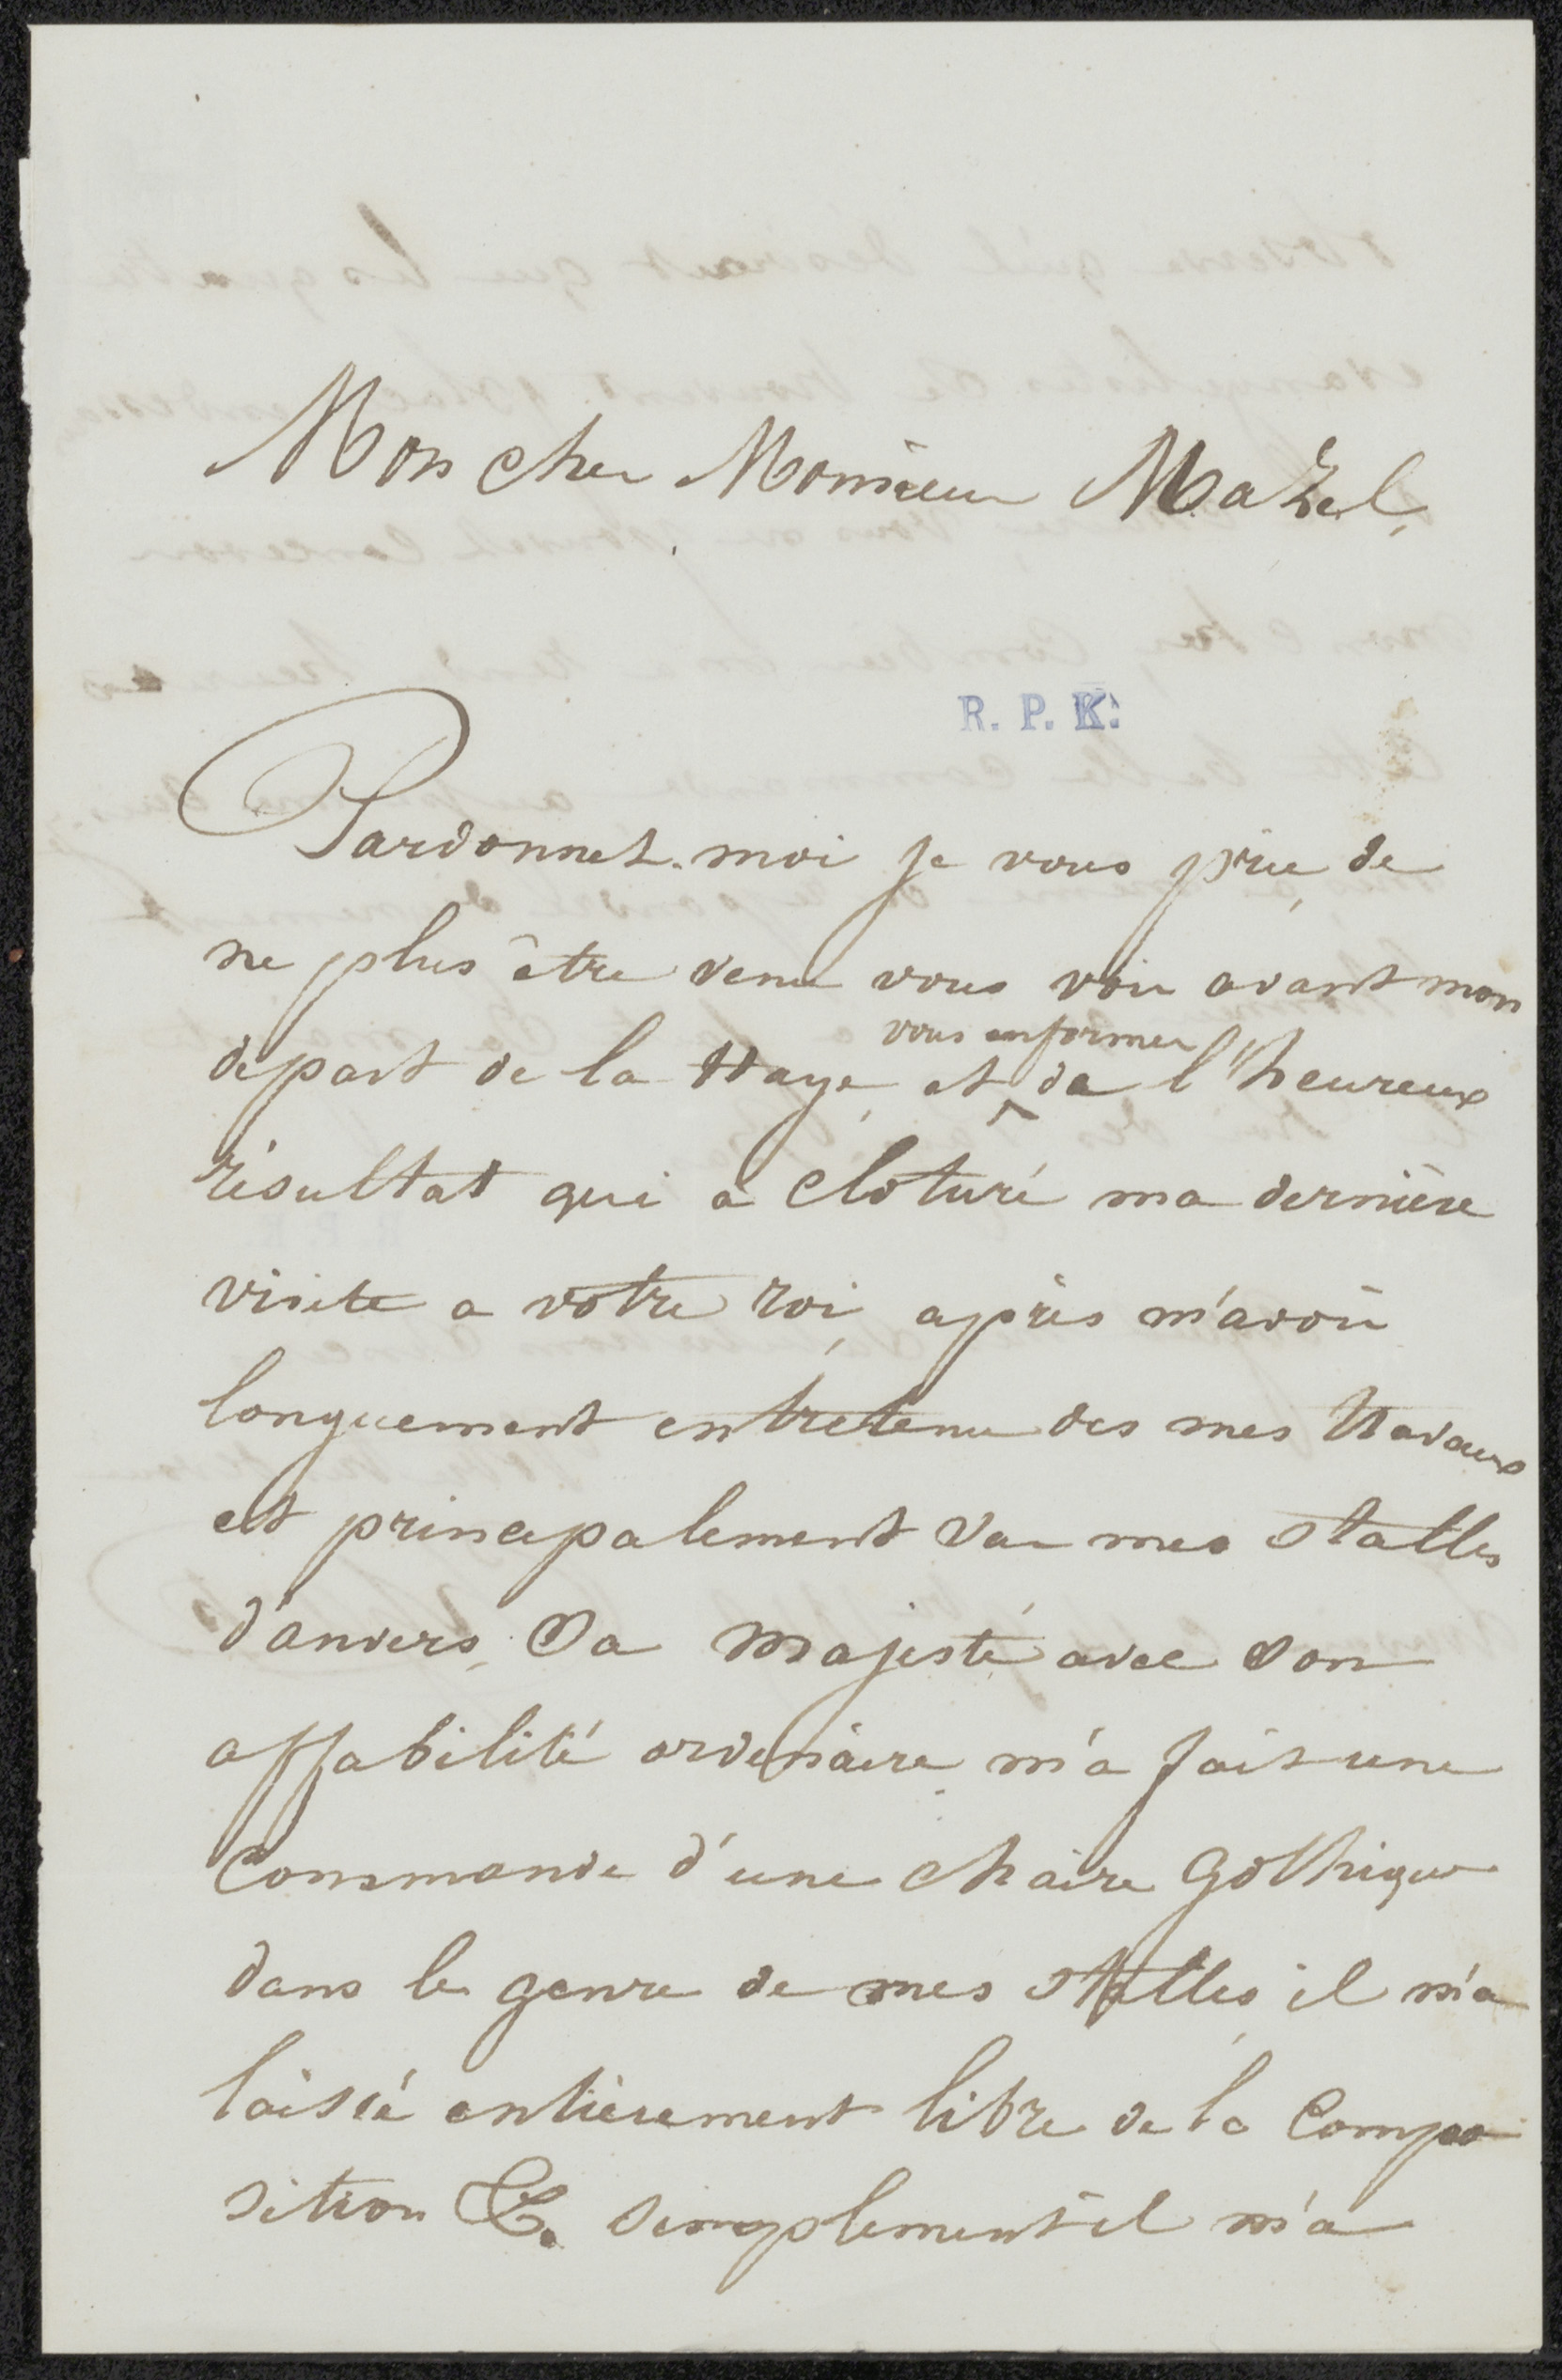 Mon cher Monsieur Mazel,
R. P. K.
Pardonnez-moi je vous prie, de
ne plus être venu vous voir avant mon
vous enformer
départ de la Haye, et de l'heureux
résultat qui a cloturé ma dernière
visite a votre roi, après m'avoir
longuement entretenu des mes travaux
et principalement sur mes stalles
d'anvers, Sa Majesté, avec son
affabilité ordenaire m'a fait une
Commande d'une chaire Gothique
dans le genre de mes stalles, il m'a
laissé entièrement libre de la Compo
sition &. Simplement il m'a